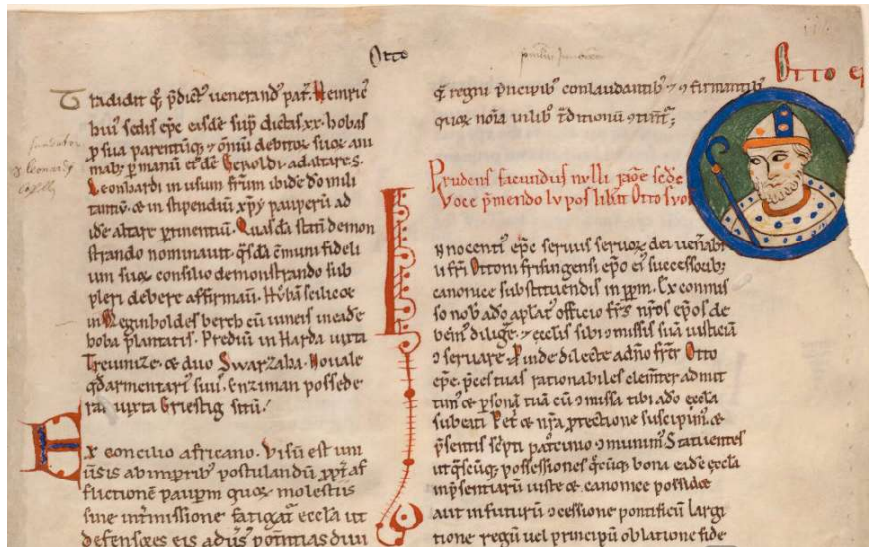 Otto
Tradidit q̄ p̄dict᷒ uenerand᷒ pat᷒ Heinric᷒
hui᷒ sedis ep̄c easdē sup̄ dictas xx· hobas
p sua parentūq; ⁊ om̄iū debitoꝝ suoꝝ ani
mab; p manū
Leonhardi in usum frūm ibidē dō mili
tantiū· & in stipendiū xp̄i pauperū ad
idē altare ptinentiū· Quasdā statī demon
strando nominauit· q̄sdā cōmuni fideli
um suoꝝ consilio demonstrando sub
pleri debere affirmauit· Hobā scilicet
in Meginboldes berch cū uineis in eadē
hoba plantatis· Prediū in Harda iuxta
Treunize· & duo Swarzaha· Nouale
qd̄ armentari᷒ suus· Enziman possede
rat iuxta Griestig sitū·
Ex concilio africano· Visū est uni
uersis ab imp̄atorib; postulandū ppt̄ af
flictionē paupm quoꝝ molestiis
sine int̄missione fatigat᷒ eccl̄a ut
defensores eis adūs᷒ potentias diui
Otto ep
regni p̄ncipib; conlaudantib; ⁊ ↄfirmantib;
quoꝝ noīa
Prudens facundus nulli
Voce p̄mendo
Innocenti᷒ ep̄c seruus seruoꝝ dei uen̄abi
li fr̄i Ottoni frisingensi ep̄o ei᷒ successorib;
canonice substituendis in ppm· Ex commis
so nob᷒ a dō apl̄at᷒ officio fr̄s nr̄os ep̄os de
bem᷒ diligere· ⁊ eccl̄iis sibi ↄmissis suā iusticiā
ↄseruare· Proinde dilecte a dn̄o frat̄ Otto
ep̄c· p̄ces tuas rationabiles clement̄ admit
tim᷒ & psonā tuā cū ↄmissa tibi a dō eccl̄a
sub beati Pet᷒ & nr̄a ptectione suscipim᷒· &
p̄sentis sc̄pti pat᷒cinio ↄmunim᷒· Statuentes
ut q̄scūq; possessiones q̄cūq; bona eadē eccl̄a
inp̄sentiarū iuste & canonice possidet
aut in futurū ↄcessione pontificū largi
tione regū uel principū oblatione fide